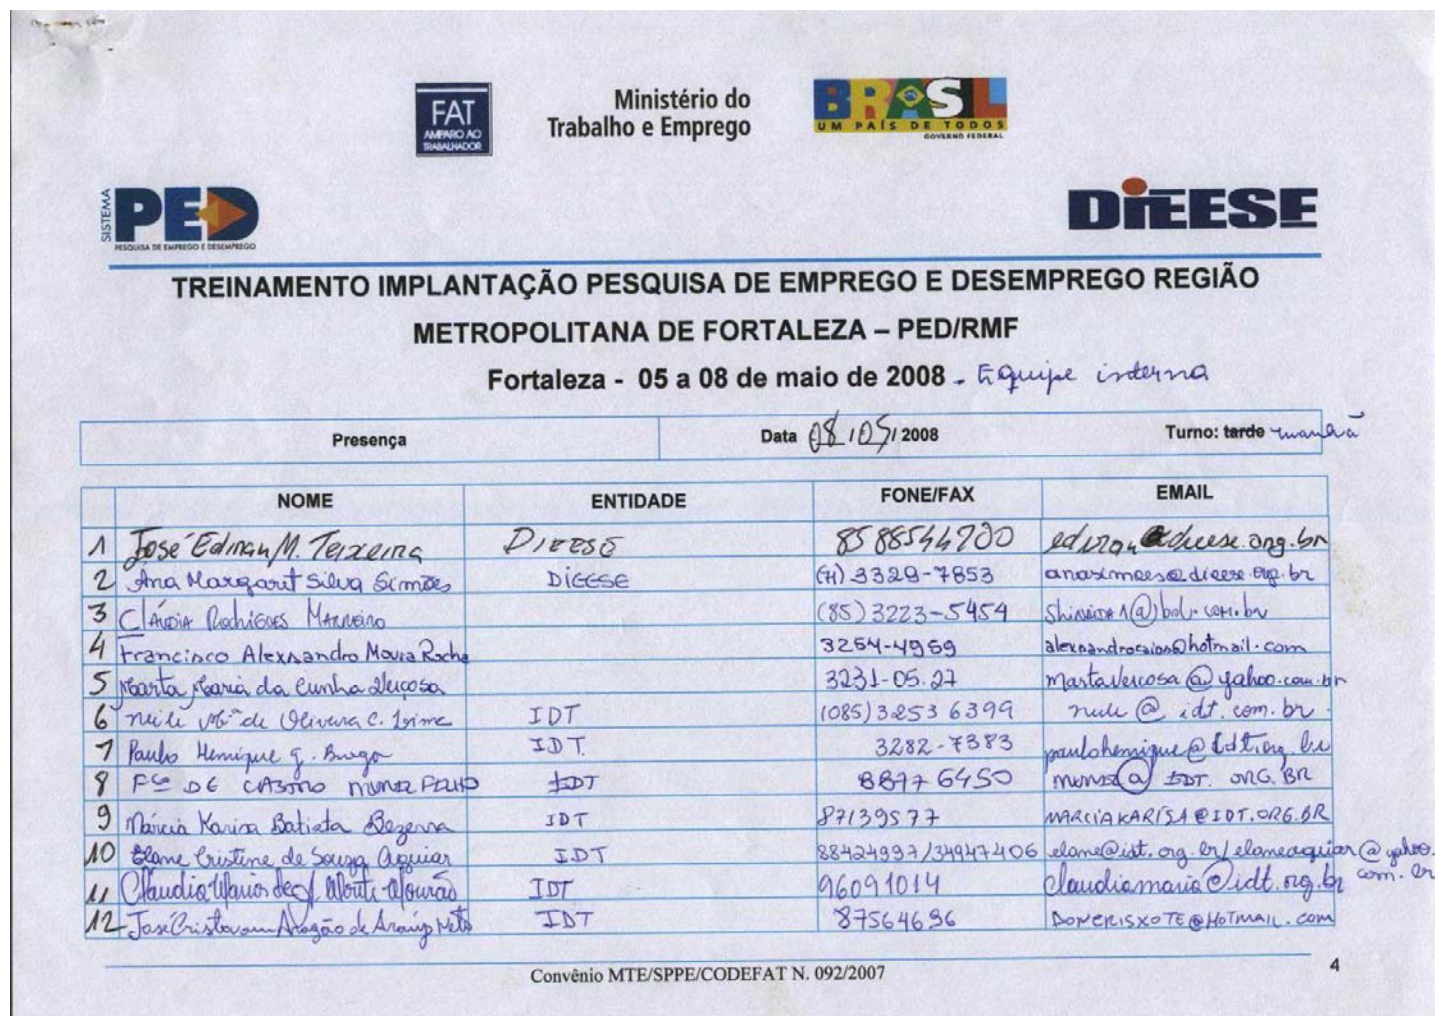 FAT
AMPARO AO
TRABALHADOR
Ministério do
Trabalho e Emprego
BRASIL
UM PAÍS DE TODOS
GOVERNO FEDERAL
SISTEMA
PED
PESQUISA DE EMPREGO E DESEMPREGO
DIEESE
TREINAMENTO IMPLANTAÇÃO PESQUISA DE EMPREGO E DESEMPREGO REGIÃO
METROPOLITANA DE FORTALEZA – PED/RMF
Fortaleza - 05 a 08 de maio de 2008 - Equipe interna
Presença Data 08/05/2008 Turno: tarde manhã
NOME ENTIDADE FONE/FAX EMAIL
1 José Ediran M. Teixeira DIEESE 85 88544700 ediran@dieese.org.br
2 Ana Margaret Silva Simões DIEESE (71) 3329-7853 anasimoes@dieese.org.br
3 Cláudia Rodrigues (85) 3223-5454
4 Francisco Alexsandro Moura Rocha 3254-4959
5 Marta Maria da Cunha Verçosa 3231-05.27 martavercosa@yahoo.com.br
6 de Oliveira C. IDT (085) 3253 6399 @idt.com.br
7 Paulo Henrique G. IDT 3282-7383 paulohenrique@idt.org.br
8 Fco DE CASTRO FILHO IDT 8877 6450 @IDT.ORG.BR
9 Márcia Karisa Batista Bezerra IDT 87139577 MARCIAKARISA@IDT.ORG.BR
10 Elane Cristine de Souza Aguiar IDT 88424997/34947406 elane@idt.org.br/elaneaguiar@yahoo.com.br
11 Claudia Maria de Monte Mourão IDT 96091014 claudiamaria@idt.org.br
12 José Cristovam Aragão de Araújo Neto IDT 87564696 DOMCRISXOTE@HOTMAIL.COM
Convênio MTE/SPPE/CODEFAT N. 092/2007
4